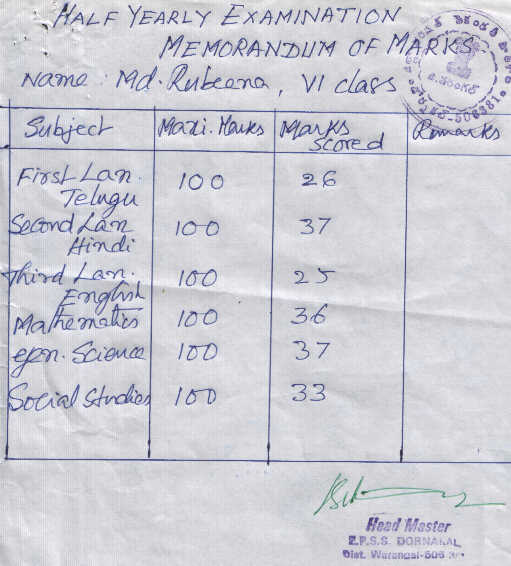 HALF YEARLY EXAMINATION
MEMORANDUM OF MARKS
Name : Md. Rubeena, VI class
Subject Maxi. Marks Marks Scored Remarks
First Lan. Telugu 100 26
Second Lan Hindi 100 37
Third Lan. English 100 25
Mathematics 100 36
Gen. Science 100 37
Social Studies 100 33
Head Master
Z.P.S.S. DORNAKAL
Dist. Warangal-506